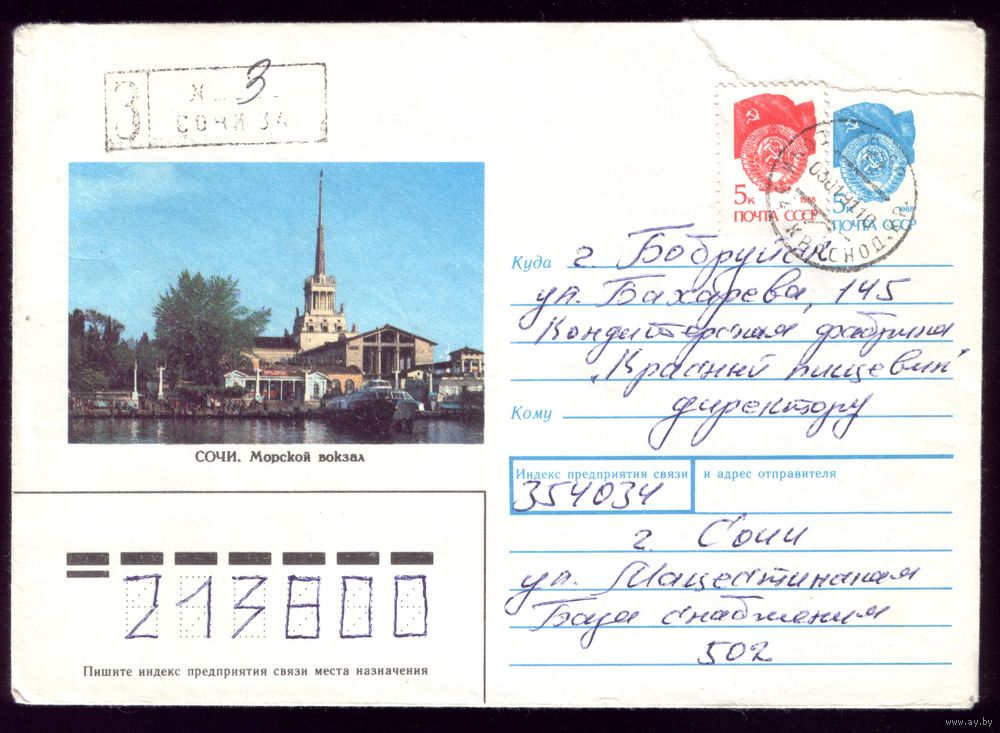 З
№ 3
СОЧИ 34
5к 1988
ПОЧТА СССР
5к 1988
ПОЧТА СССР
03019110
КРАСНОД.
Куда г. Бобруйск
ул. Бахарева, 145
Кондитерская фабрика
"Красный пищевик"
Кому директору
СОЧИ. Морской вокзал
Индекс предприятия связи и адрес отправителя
354034
г. Сочи
ул. Мацестинская
База снабжения
502
213800
Пишите индекс предприятия связи места назначения
www.ay.by